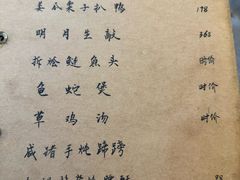 姜瓜栗子扒鸭 198
明月生敲 368
拆烩鲢鱼头 时价
龟蛇煲 时价
草鸡汤 时价
咸猪手炖蹄髈
38